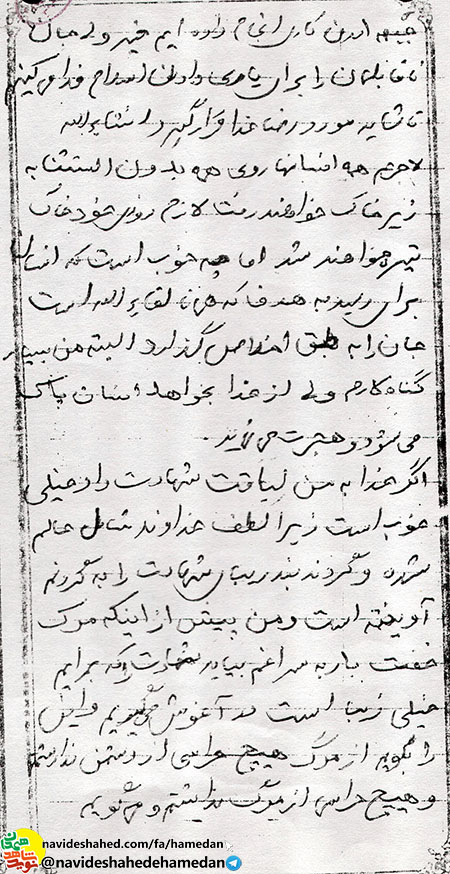 جبهه آمدن کاری انجام داده ایم خیر ولی جان
ناقابلمان را برای یاری دادن اسلام فدا می کنیم
تا شاید مورد رضا خدا قرار گیرد انشاءالله
لاجرم همه انسانها روی همه بدون استثنا به
زیر خاک خواهند رفت لازم روزی خود خاک
تیره خواهند شد اما چه خوب است که انسان
برای رسیدن به هدف که همان لقاء الله است
جان را به طبق اخلاص گذارد البته من بسیار
گناه کارم ولی از خدا بخواهد انسان پاک
می شود و هجرت می نماید
اگر خدا به من لیاقت شهادت داد خیلی
خوب است زیرا لطف خداوند شامل حالم
شده و گردنبند زیبای شهادت را به گردنم
آویخته است و من پیش از اینکه مرگ
خفت بار به سراغم بیاید شهادت را که برایم
خیلی زیبا است در آغوش می گیریم و این
را بگویم از مرگ هیچ هراسی از دشمن نداشتم
و هیچ هراس از مرگ نداشتم و می گویم
navideshahed.com/fa/hamedan
@navideshahedehamedan